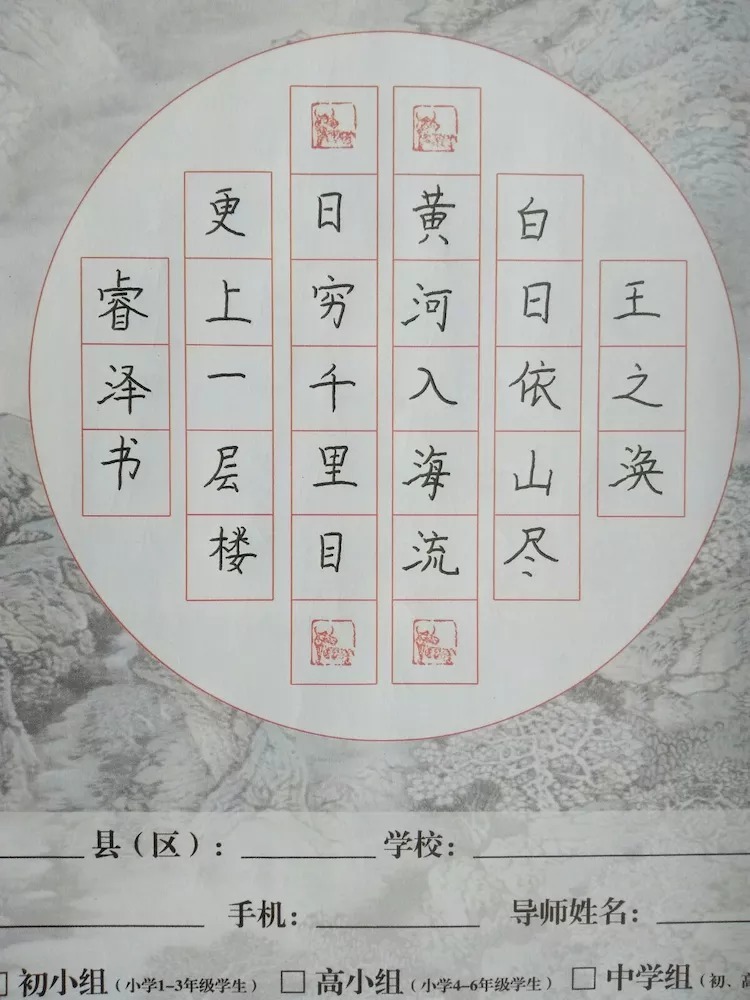 王之涣
白日依山尽
黄河入海流
日穷千里目
更上一层楼
睿泽书
县（区）： 学校：
手机： 导师姓名：
□ 初小组（小学1-3年级学生） □ 高小组（小学4-6年级学生） □ 中学组（初、